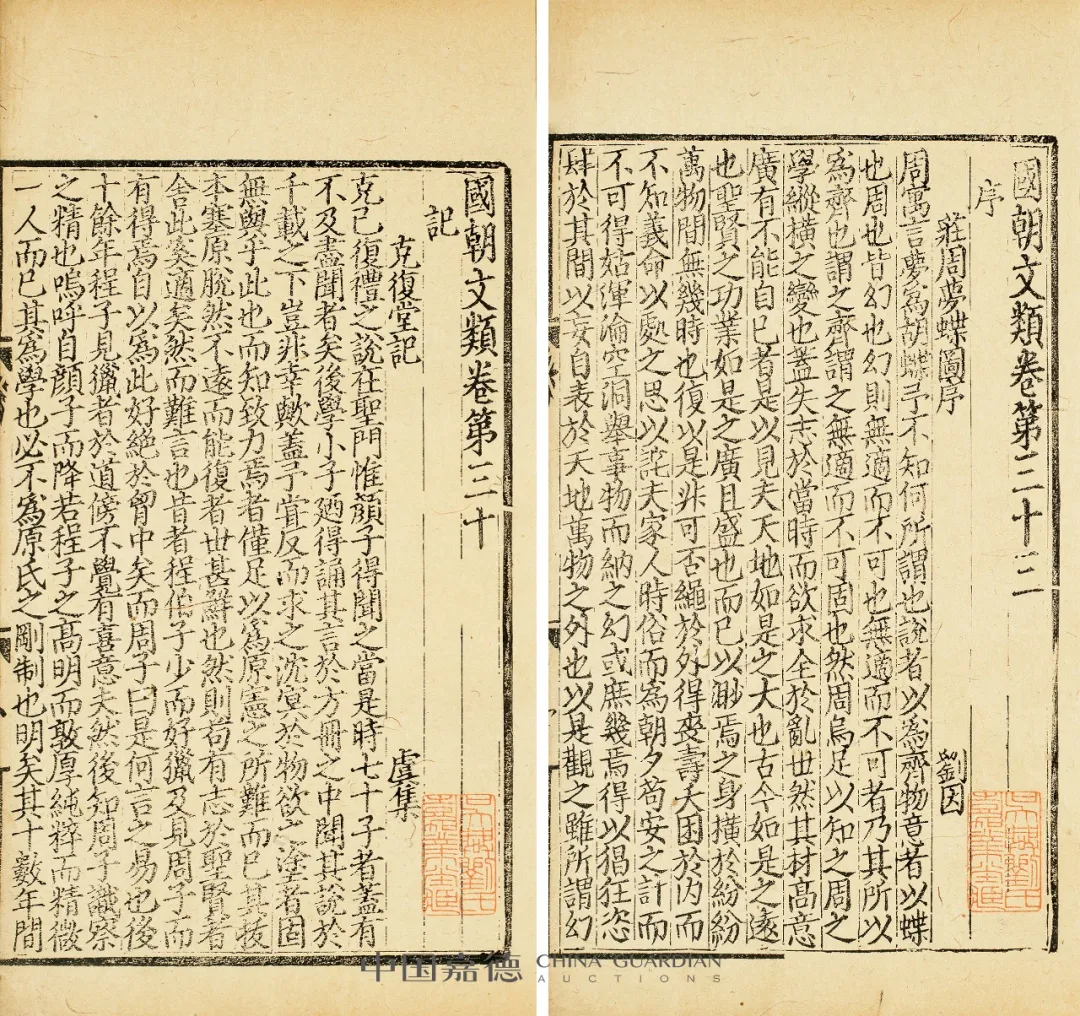 國朝文類卷第三十二
序
莊周夢蝶圖序 劉因
周寓言夢爲胡蝶予不知何所謂也說者以爲齊物意者以蝶
也周也皆幻也幻則無適而不可也無適而不可者乃其所以
爲齊也謂之齊謂之無適而不可固也然周烏足以知之周之
學縱橫之變也蓋失志於當時而欲求全於亂世然其材高意
廣有不能自已者是以見夫天地如是之大也古今如是之遠
也聖賢之功業如是之廣且盛也而已以渺焉之身橫於紛紛
萬物間無幾時也復以是非可否繩於外得喪壽夭困於内而
不知義命以處之思以詫夫家人時俗而爲朝夕苟安之計而
不可得姑渾淪空洞舉事物而納之幻或庶幾焉得以猖狂恣
肆於其間以妄自表於天地萬物之外也以是觀之雖所謂幻
吳興劉氏
嘉業堂
國朝文類卷第三十
記
克復堂記 虞集
克己復禮之說在聖門惟顏子得聞之當是時七十子者蓋有
不及盡聞者矣後學小子廼得誦其言於方冊之中聞其說於
千載之下豈非幸歟蓋予嘗反而求之沈㝠於物欲之塗者固
無與乎此也而知致力焉者僅足以爲原憲之所難而已其拔
本塞原脫然不遠而能復者世甚鮮也然則苟有志於聖賢者
舍此奚適矣然而難言也昔者程伯子少而好獵及見周子而
有得焉自以爲此好絶於胷中矣而周子曰是何言之易也後
十餘年程子見獵者於道傍不覺有喜意夫然後知周子識察
之精也嗚呼自顏子而降若程子之高明而敦厚純粹而精微
一人而已其爲學也必不爲原氏之剛制也明矣其十數年間
中国嘉德 CHINA GUARDIAN
AUCTIONS